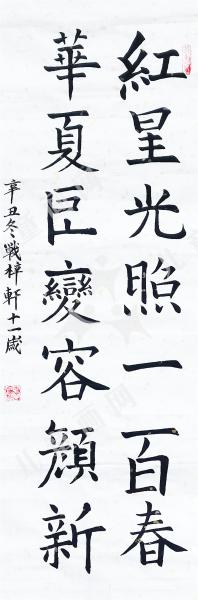 紅星光照一百春
華夏巨變容顔新
辛丑冬戰梓軒十一歲